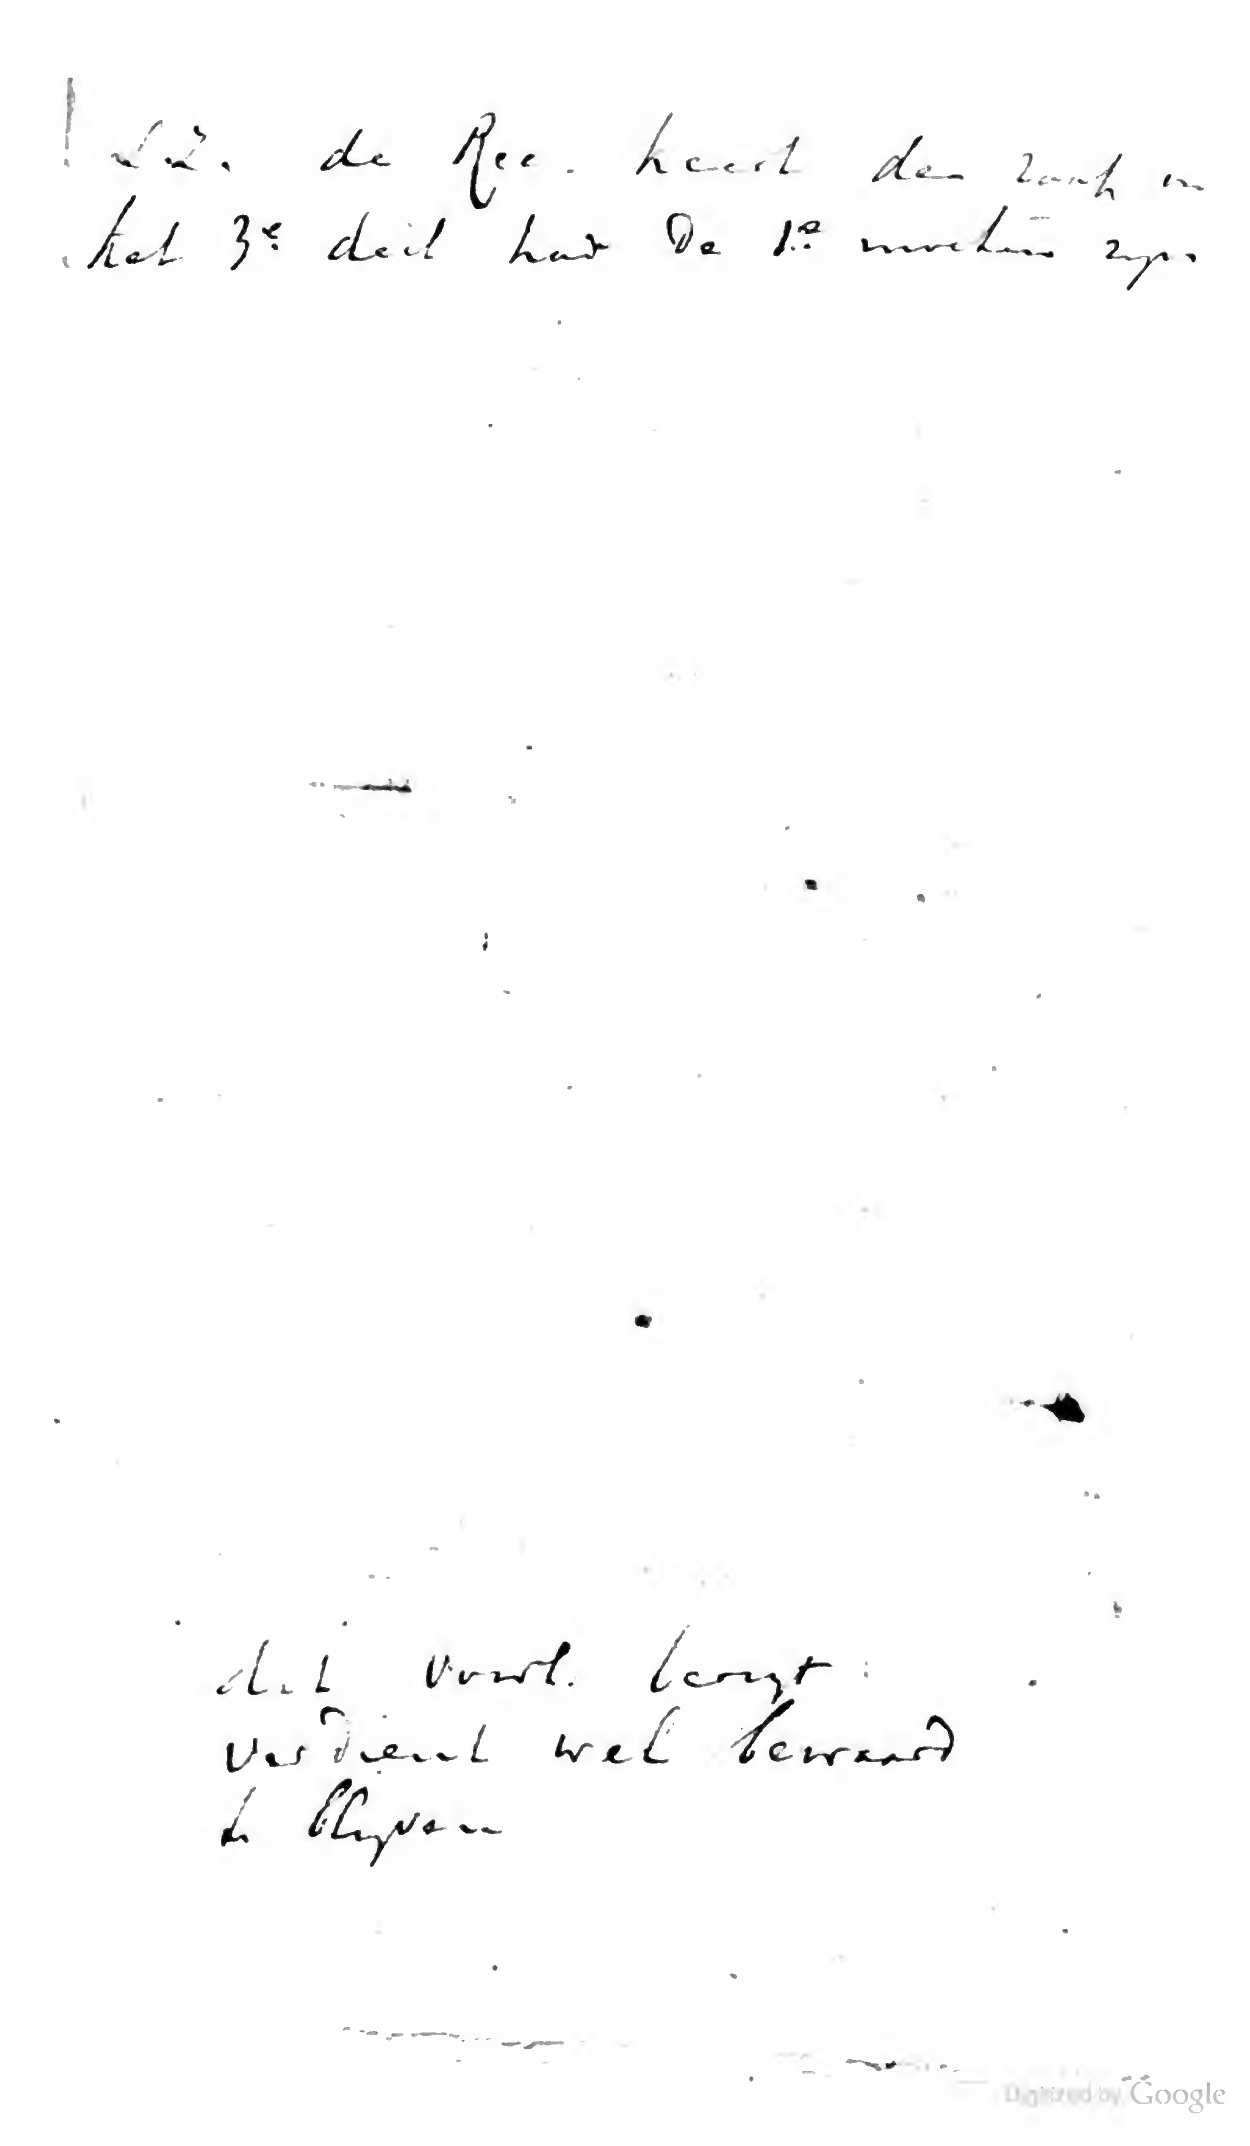 de Rec. keert den zaak om
het 3e deel had De 1e moeten zyn
dit voorl.
verdient wel bewaard
te blyven
Digitized by Google